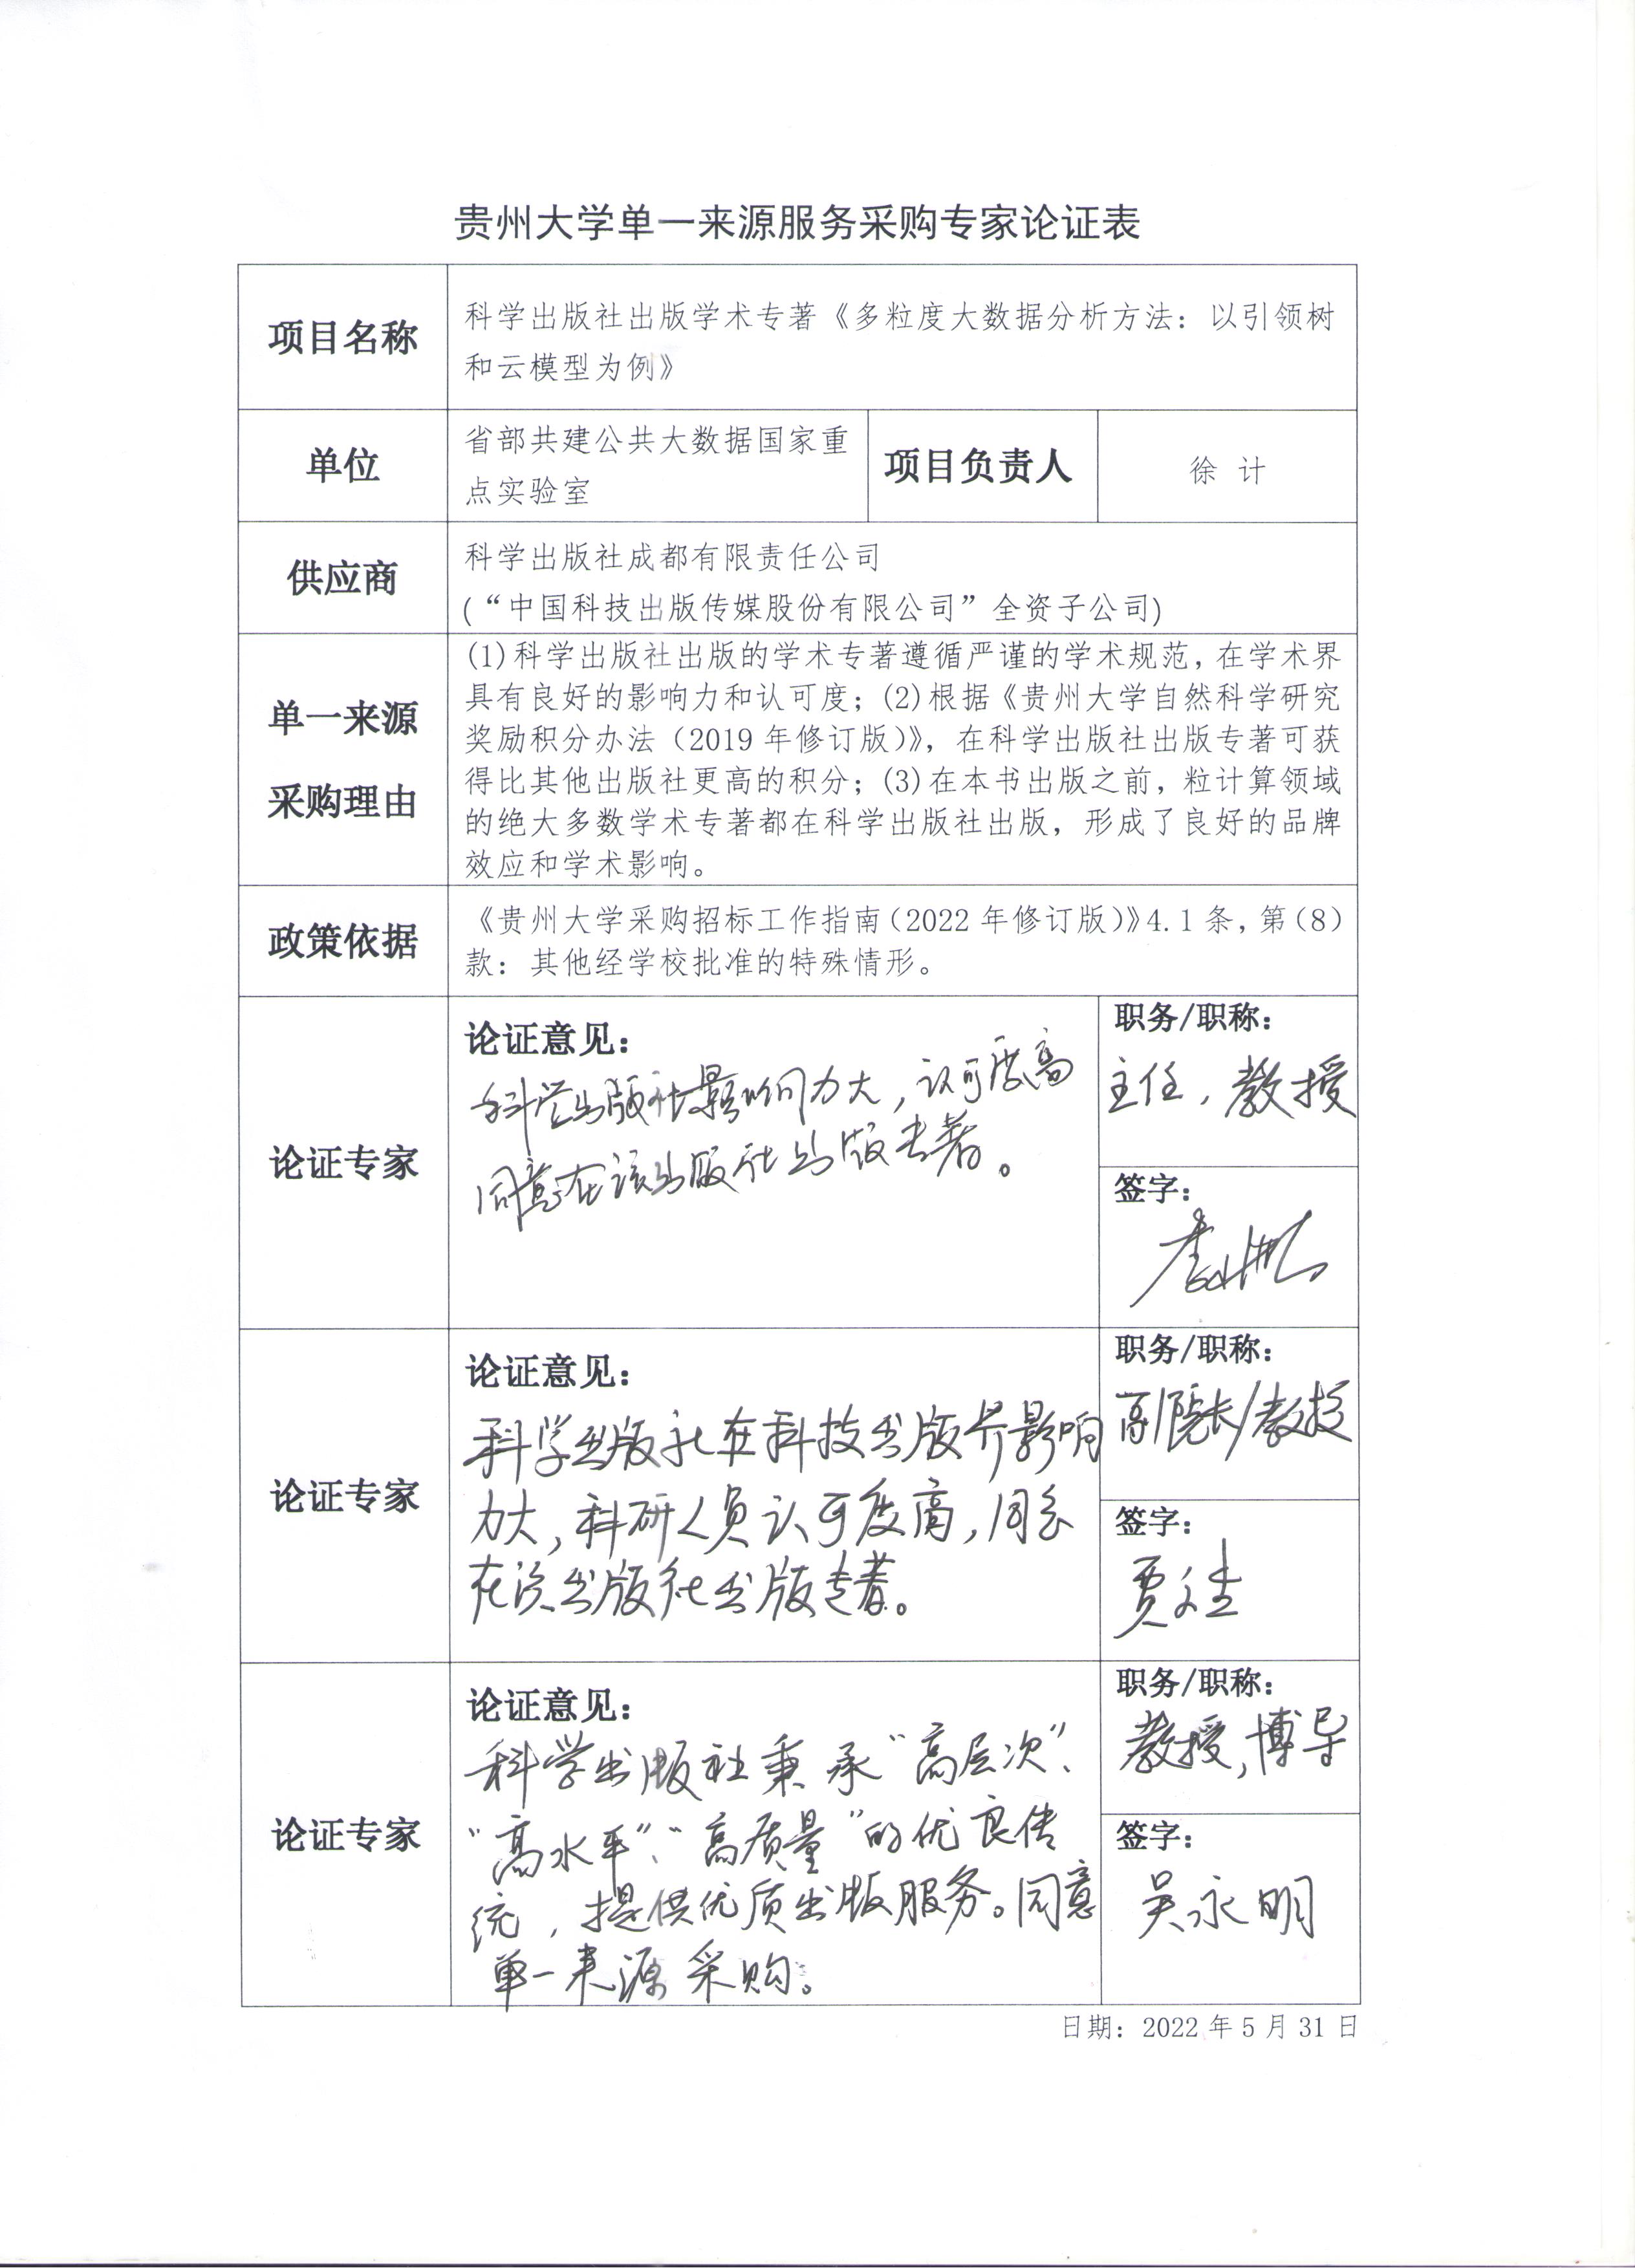 贵州大学单一来源服务采购专家论证表
项目名称
科学出版社出版学术专著《多粒度大数据分析方法：以引领树
和云模型为例》
单位
省部共建公共大数据国家重
点实验室
项目负责人
徐 计
供应商
科学出版社成都有限责任公司
(“中国科技出版传媒股份有限公司”全资子公司)
单一来源
采购理由
(1)科学出版社出版的学术专著遵循严谨的学术规范，在学术界
具有良好的影响力和认可度；(2)根据《贵州大学自然科学研究
奖励积分办法（2019 年修订版）》，在科学出版社出版专著可获
得比其他出版社更高的积分；(3)在本书出版之前，粒计算领域
的绝大多数学术专著都在科学出版社出版，形成了良好的品牌
效应和学术影响。
政策依据
《贵州大学采购招标工作指南（2022 年修订版）》4.1 条，第（8）
款：其他经学校批准的特殊情形。
论证专家
论证意见：
科学出版社影响力大，认可度高
同意在该出版社出版专著。
职务/职称：
主任，教授
签字：
论证专家
论证意见：
科学出版社在科技出版界影响
力大，科研人员认可度高，同意
在该出版社出版专著。
职务/职称：
副院长/教授
签字：
贾
论证专家
论证意见：
科学出版社秉承“高层次”、
“高水平”、“高质量”的优良传
统，提供优质出版服务。同意
单一来源采购。
职务/职称：
教授，博导
签字：
吴永明
日期：2022 年 5 月 31 日